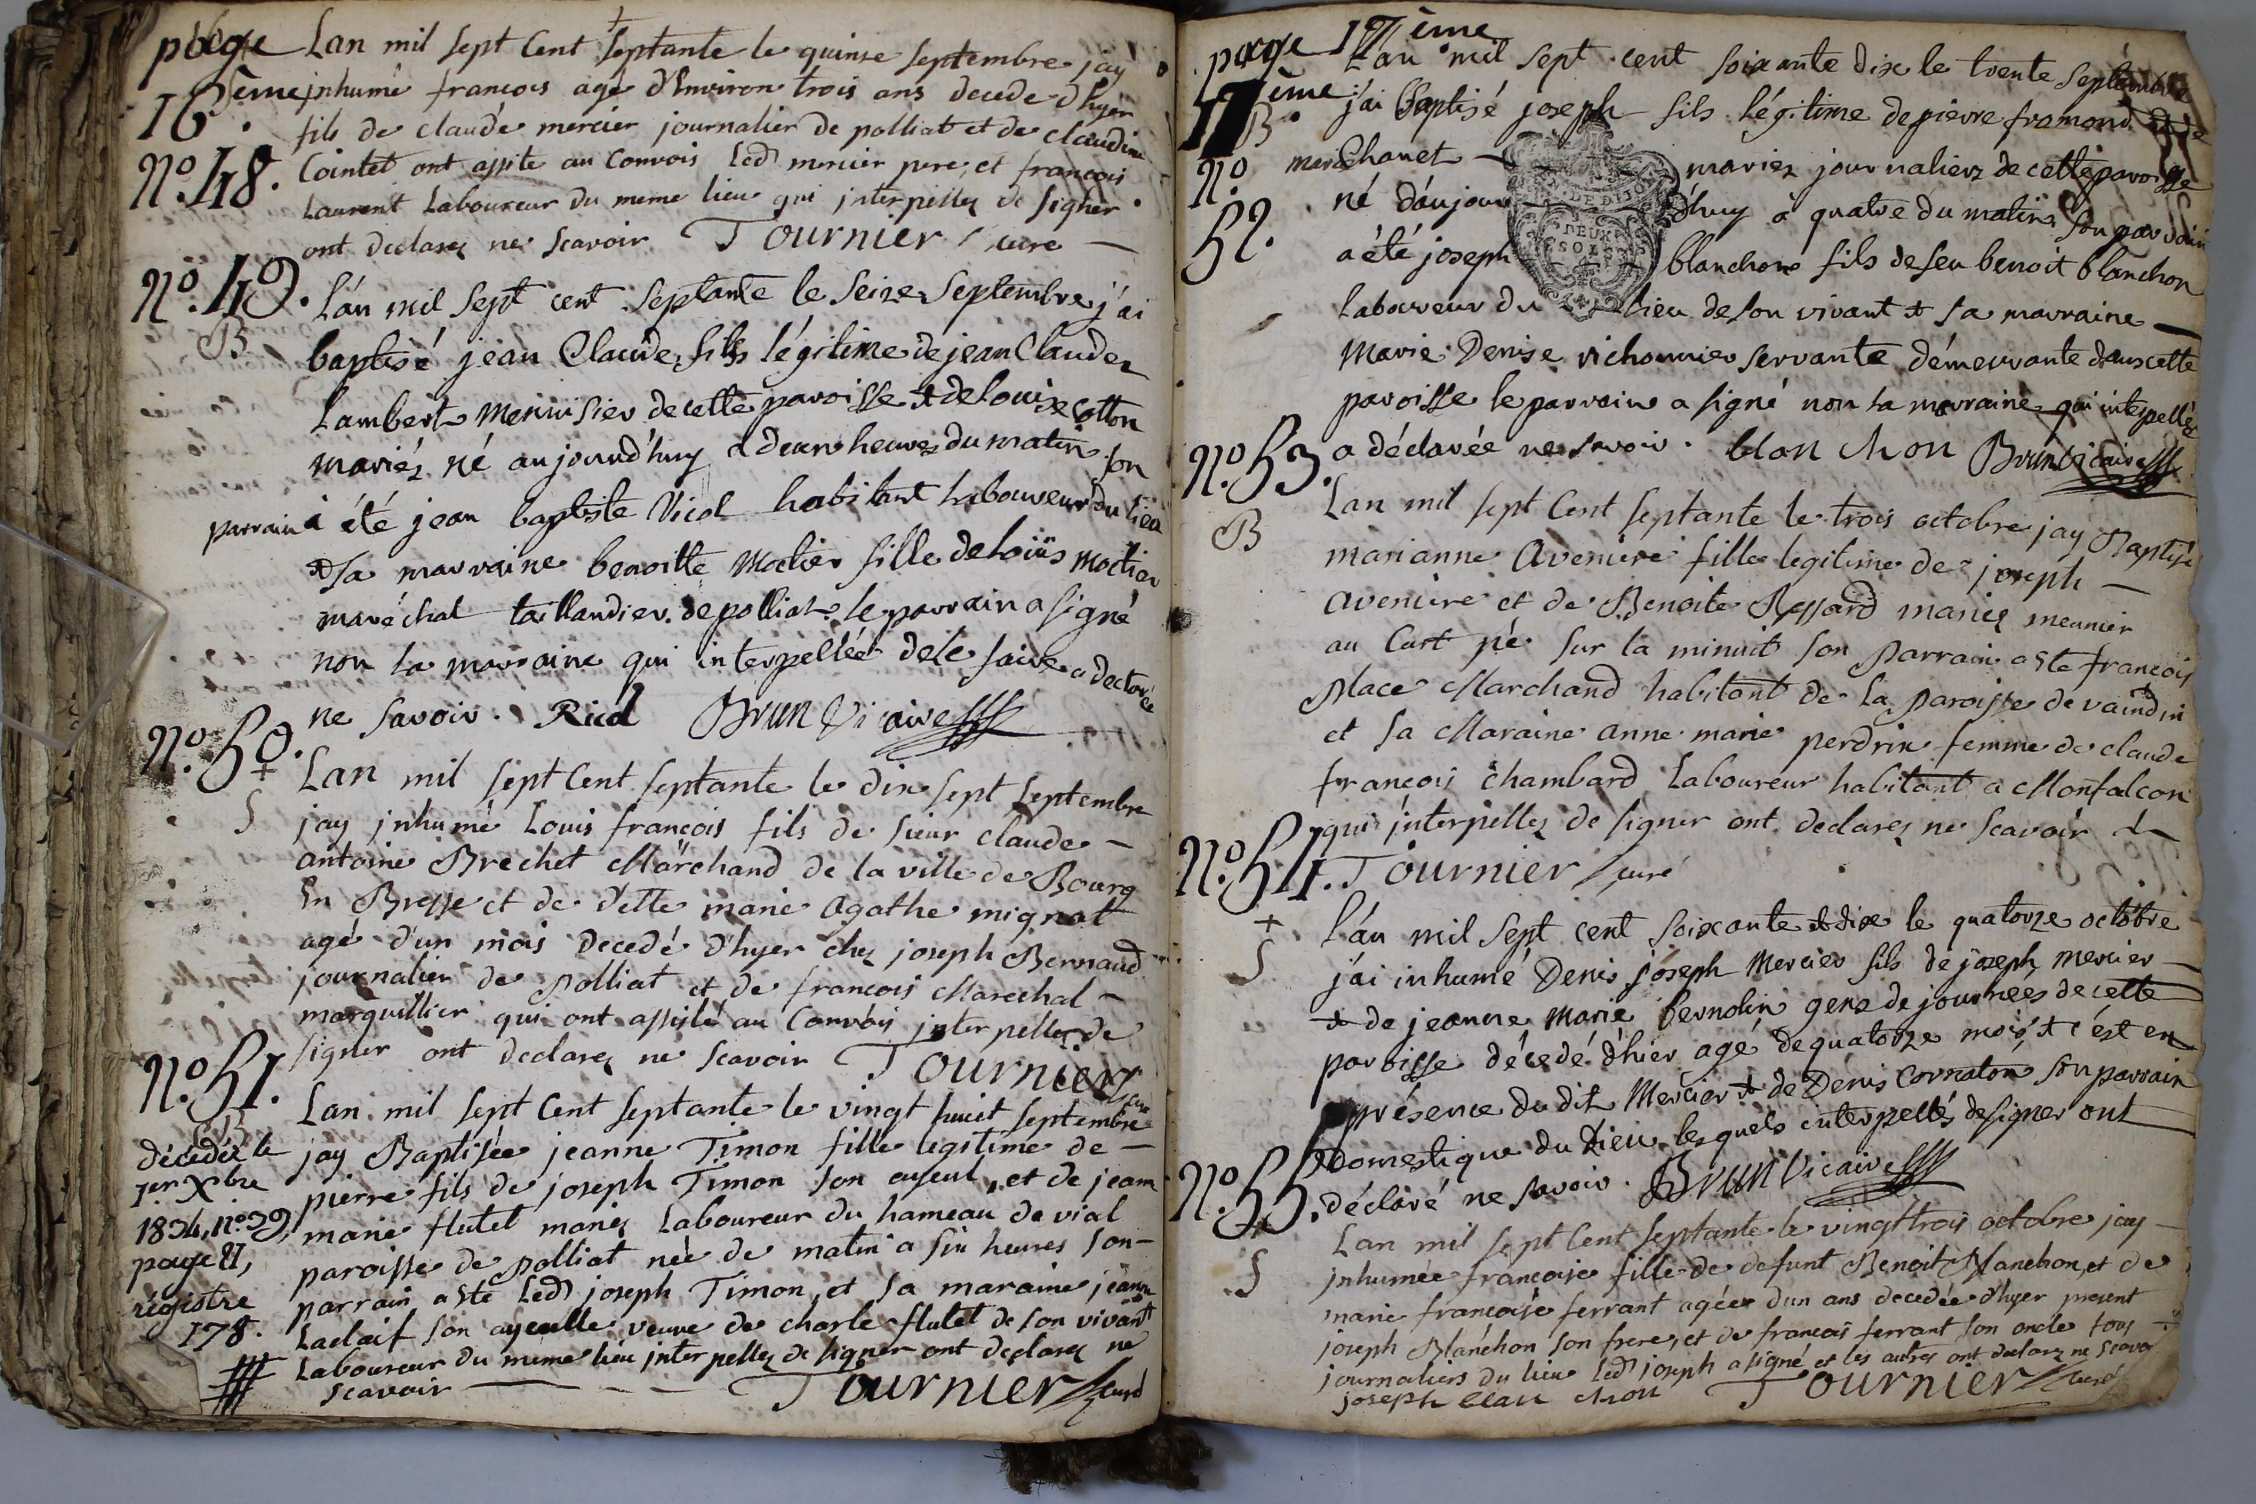 page
16ème.
Lan mil sept Cent septante le quinse septembre jay
inhumé francois agé d'Environ trois ans decede d'hyer
fils de claude mercier journalier de polliat et de claudine
Nº.48.
Cointet ont assite au Convois led mercier pere, et francois
Laurent Laboureur du meme lieu qui interpellez de signer
ont declarez ne scavoir Tournier curé
Nº.49.
B
L'án mil sept cent septante le seize septembre j'ai
baptisé jean Claude fils légitime de jean Claude
Lambert menuisier de cette paroisse & de louise cotton
mariéz né aujourd'huy à deux heures du matin son
parrain à été jean baptiste Vicol habitant laboureur du lieu
& sa marraine benoitte moctier fille de loüis moctier
maréchal taillandier de polliat le parrain a signé
non la marraine qui interpellée de le faire a declaré
ne savoir. Ricol Brun Vicaire
Nº.50.
+
S
Lan mil sept Cent septante le dix sept septembre
jay inhumé Louis françois fils de sieur claude
antoine Brechet Marchand de la ville de Bourg
En Bresse et de delle marie agathe mignot
agé d'un mois decedé d'hyer chez joseph Bernaud
journalier de polliat et de francois Marechal
marguillier qui ont assisté au Convois interpellez de
signer ont declarez ne scavoir Tournier curé
Nº.51.
B
Lan mil sept Cent septante le vingt huit septembre
jay Baptisée jeanne Timon fille legitime de
pierre fils de joseph Timon son ayeul, et de jeanne
marie flutet mariez Laboureur du hameau de vial
paroisse de polliat née de matin a six heures son
parrain a ste led joseph Timon, et sa maraine jeanne
Laclaif son ayeulle veuve de charle flutet de son vivant
Laboureur du meme lieu interpellez de signer ont declarez ne
scavoir Tournier curé
décédée le
1er Xbre
1834, nº 39,
page 11,
régistre
178.
page 17ème
17ème
B
L'an mil sept cent soixante dix le trente septembre
j'ai baptisé joseph fils légitime de pierre framond & de
Nº
52.
marie Chanet mariez journaliers de cette paroisse
né d'aujourd'huy à quatre du matin son parrain
a été joseph blanchon fils de feu benoit blanchon
DEUX
SOLS
laboureur du lieu de son vivant & sa marraine
Marie Denise vichonnier servante démeurante dans cette
paroisse le parrain a signé non la marraine qui interpellée
a déclarée ne savoir. blon chon Brun Vicaire
Nº.53.
B
Lan mil sept Cent septante le trois octobre jay Baptisé
marianne Aveniere fille legitime de joseph
aveniere et de Benoite Ressard mariez meunier
au Curt né sur la minuit son parrain a ste francois
Place Marchand habitant de la paroisse de vaindin
et sa Maraine anne marie perdrix femme de claude
françois chambard Laboureur habitant a Monfalcon
qui interpellez de signer ont declarez ne scavoir
Nº.54.
Tournier curé
+
S
L'án mil sept cent soixante & dix le quatorze octobre
j'ai inhumé Denis joseph Mercier fils de joseph mercier
& de jeanne Marie bernolin gens de journées de cette
paroisse décedé d'hier agé de quatorze mois, & c'est en
présence du dit Mercier & de Denis Cornaton son parrain
Domestique du Lieu lesquels interpellés de signer ont
déclaré ne savoir. Brun Vicaire
Nº.55.
+
S
Lan mil sept Cent septante le vingt trois octobre jay
inhumée francoise fille de defunt Benoit Blanchon, et de
marie francoise ferrant agée d'un ans decedée d'hyer present
joseph Blanchon son frere, et de francois ferrant son oncle tous
journaliers du lieu led joseph a signé et les autres ont declarez ne scavoir
joseph blan chon Tournier curé